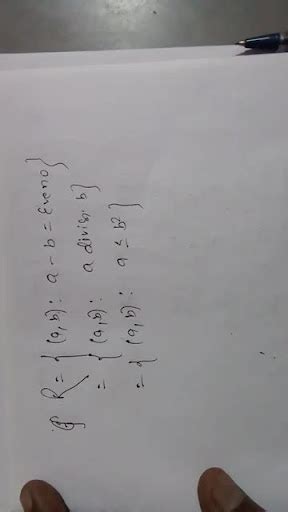 If R = { (a, b) : a - b = Even no }
= { (a, b) : a divides b }
= { (a, b) : a ≤ b² }